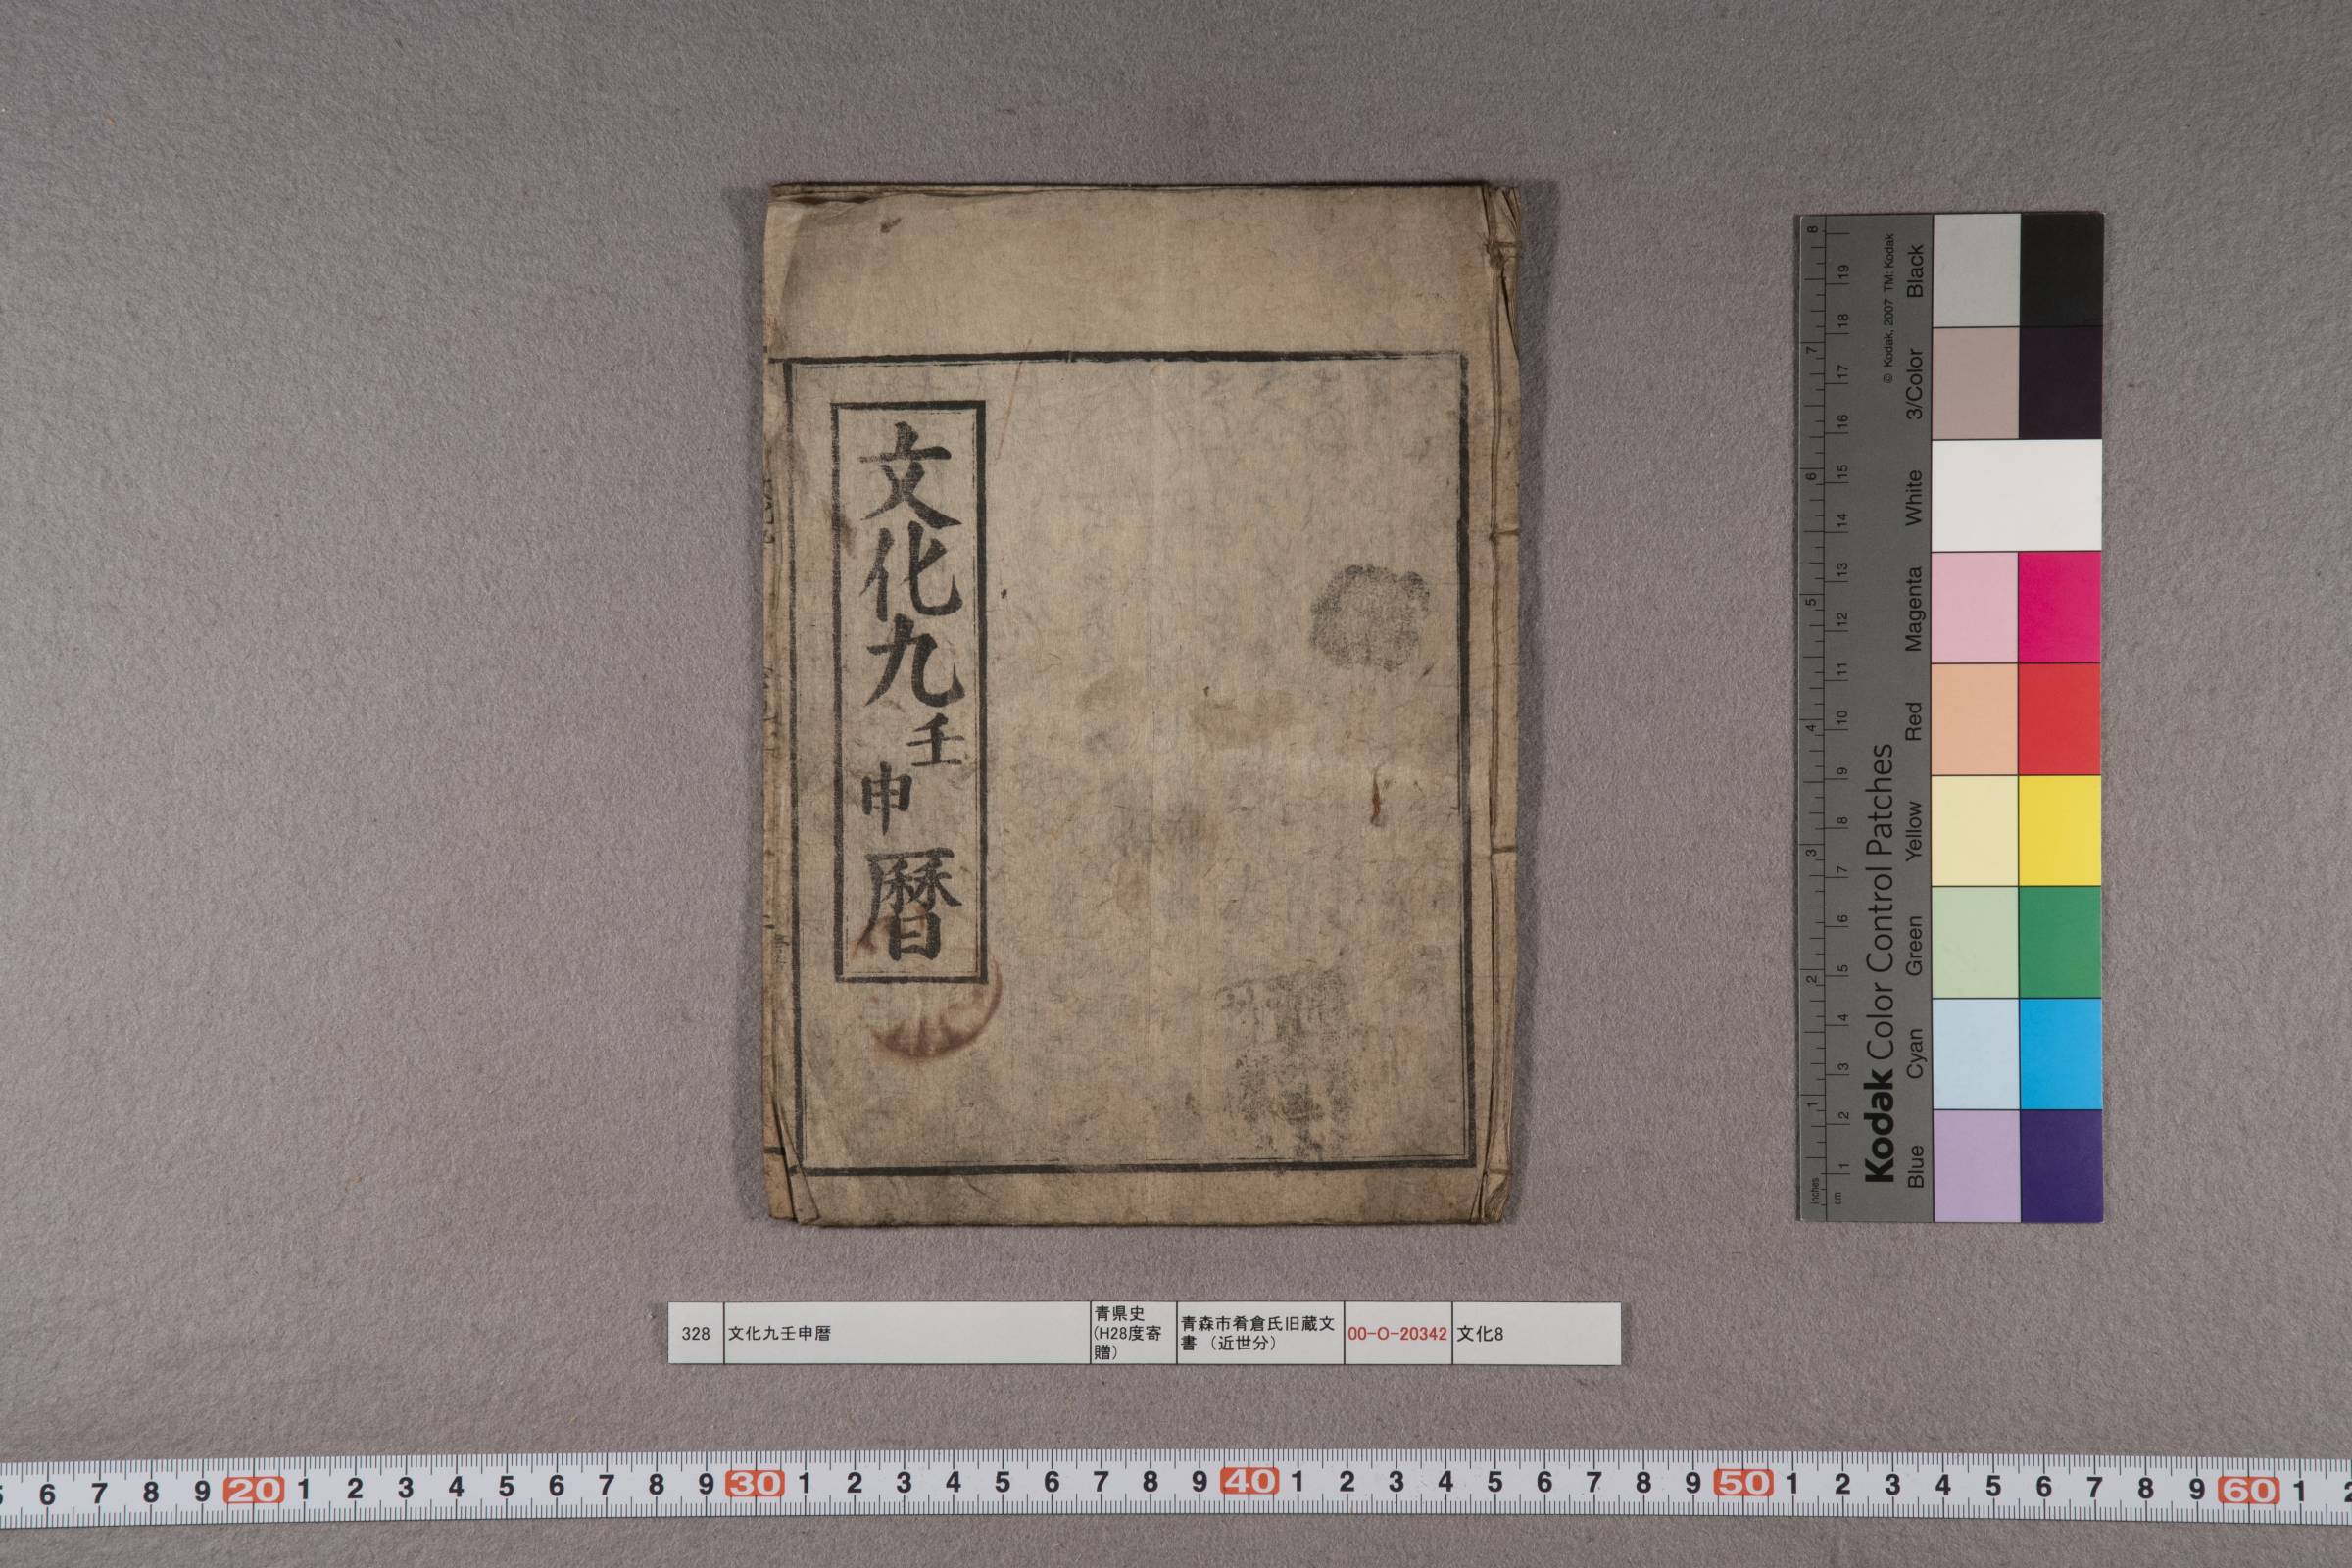 文化九壬申暦
328
文化九壬申暦
青県史
(H28度寄
贈)
青森市肴倉氏旧蔵文
書 （近世分）
00-O-20342
文化8
© Kodak, 2007 TM: Kodak
Kodak Color Control Patches
Blue Cyan Green Yellow Red Magenta White 3/Color Black
inches 1 2 3 4 5 6 7 8
cm 1 2 3 4 5 6 7 8 9 10 11 12 13 14 15 16 17 18 19
6 7 8 9 20 1 2 3 4 5 6 7 8 9 30 1 2 3 4 5 6 7 8 9 40 1 2 3 4 5 6 7 8 9 50 1 2 3 4 5 6 7 8 9 60 1